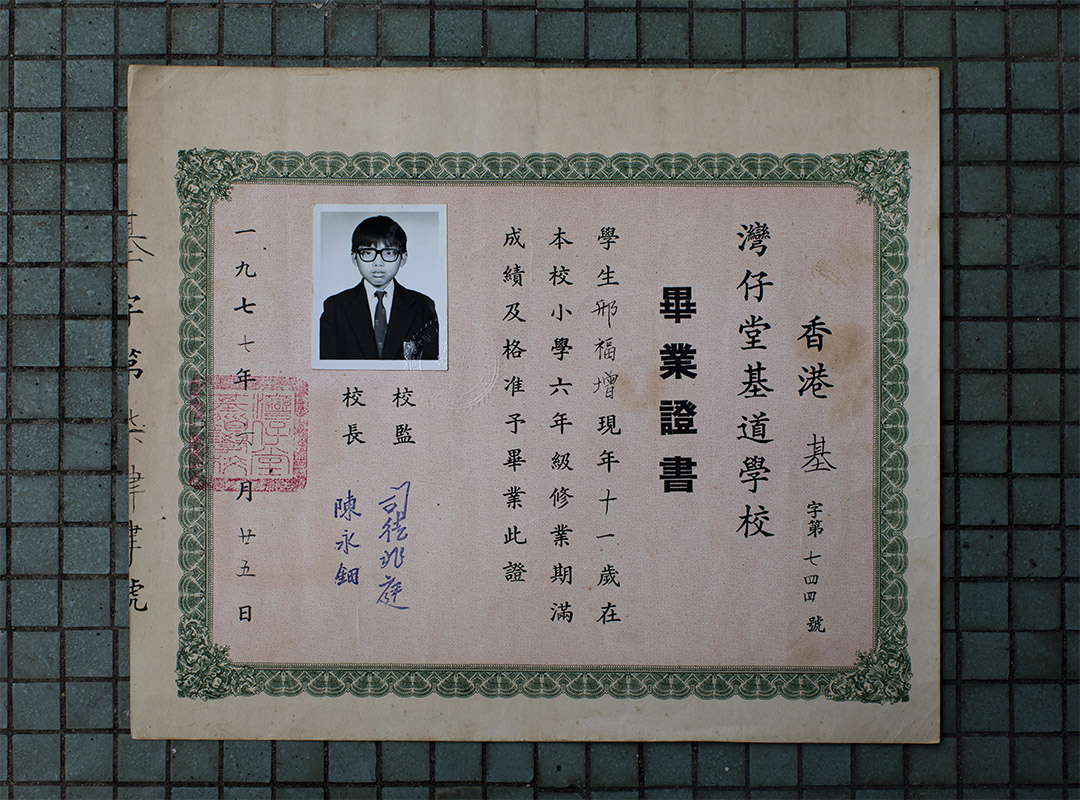 香港 基字第七四四號
灣仔堂基道學校
畢業證書
學生邢福增現年十一歲在
本校小學六年級修業期滿
成績及格准予畢業此證
校監 司徒兆庭
校長 陳永鈿
一九七七年 月廿五日
灣仔堂基道學校
基字第柒肆肆號